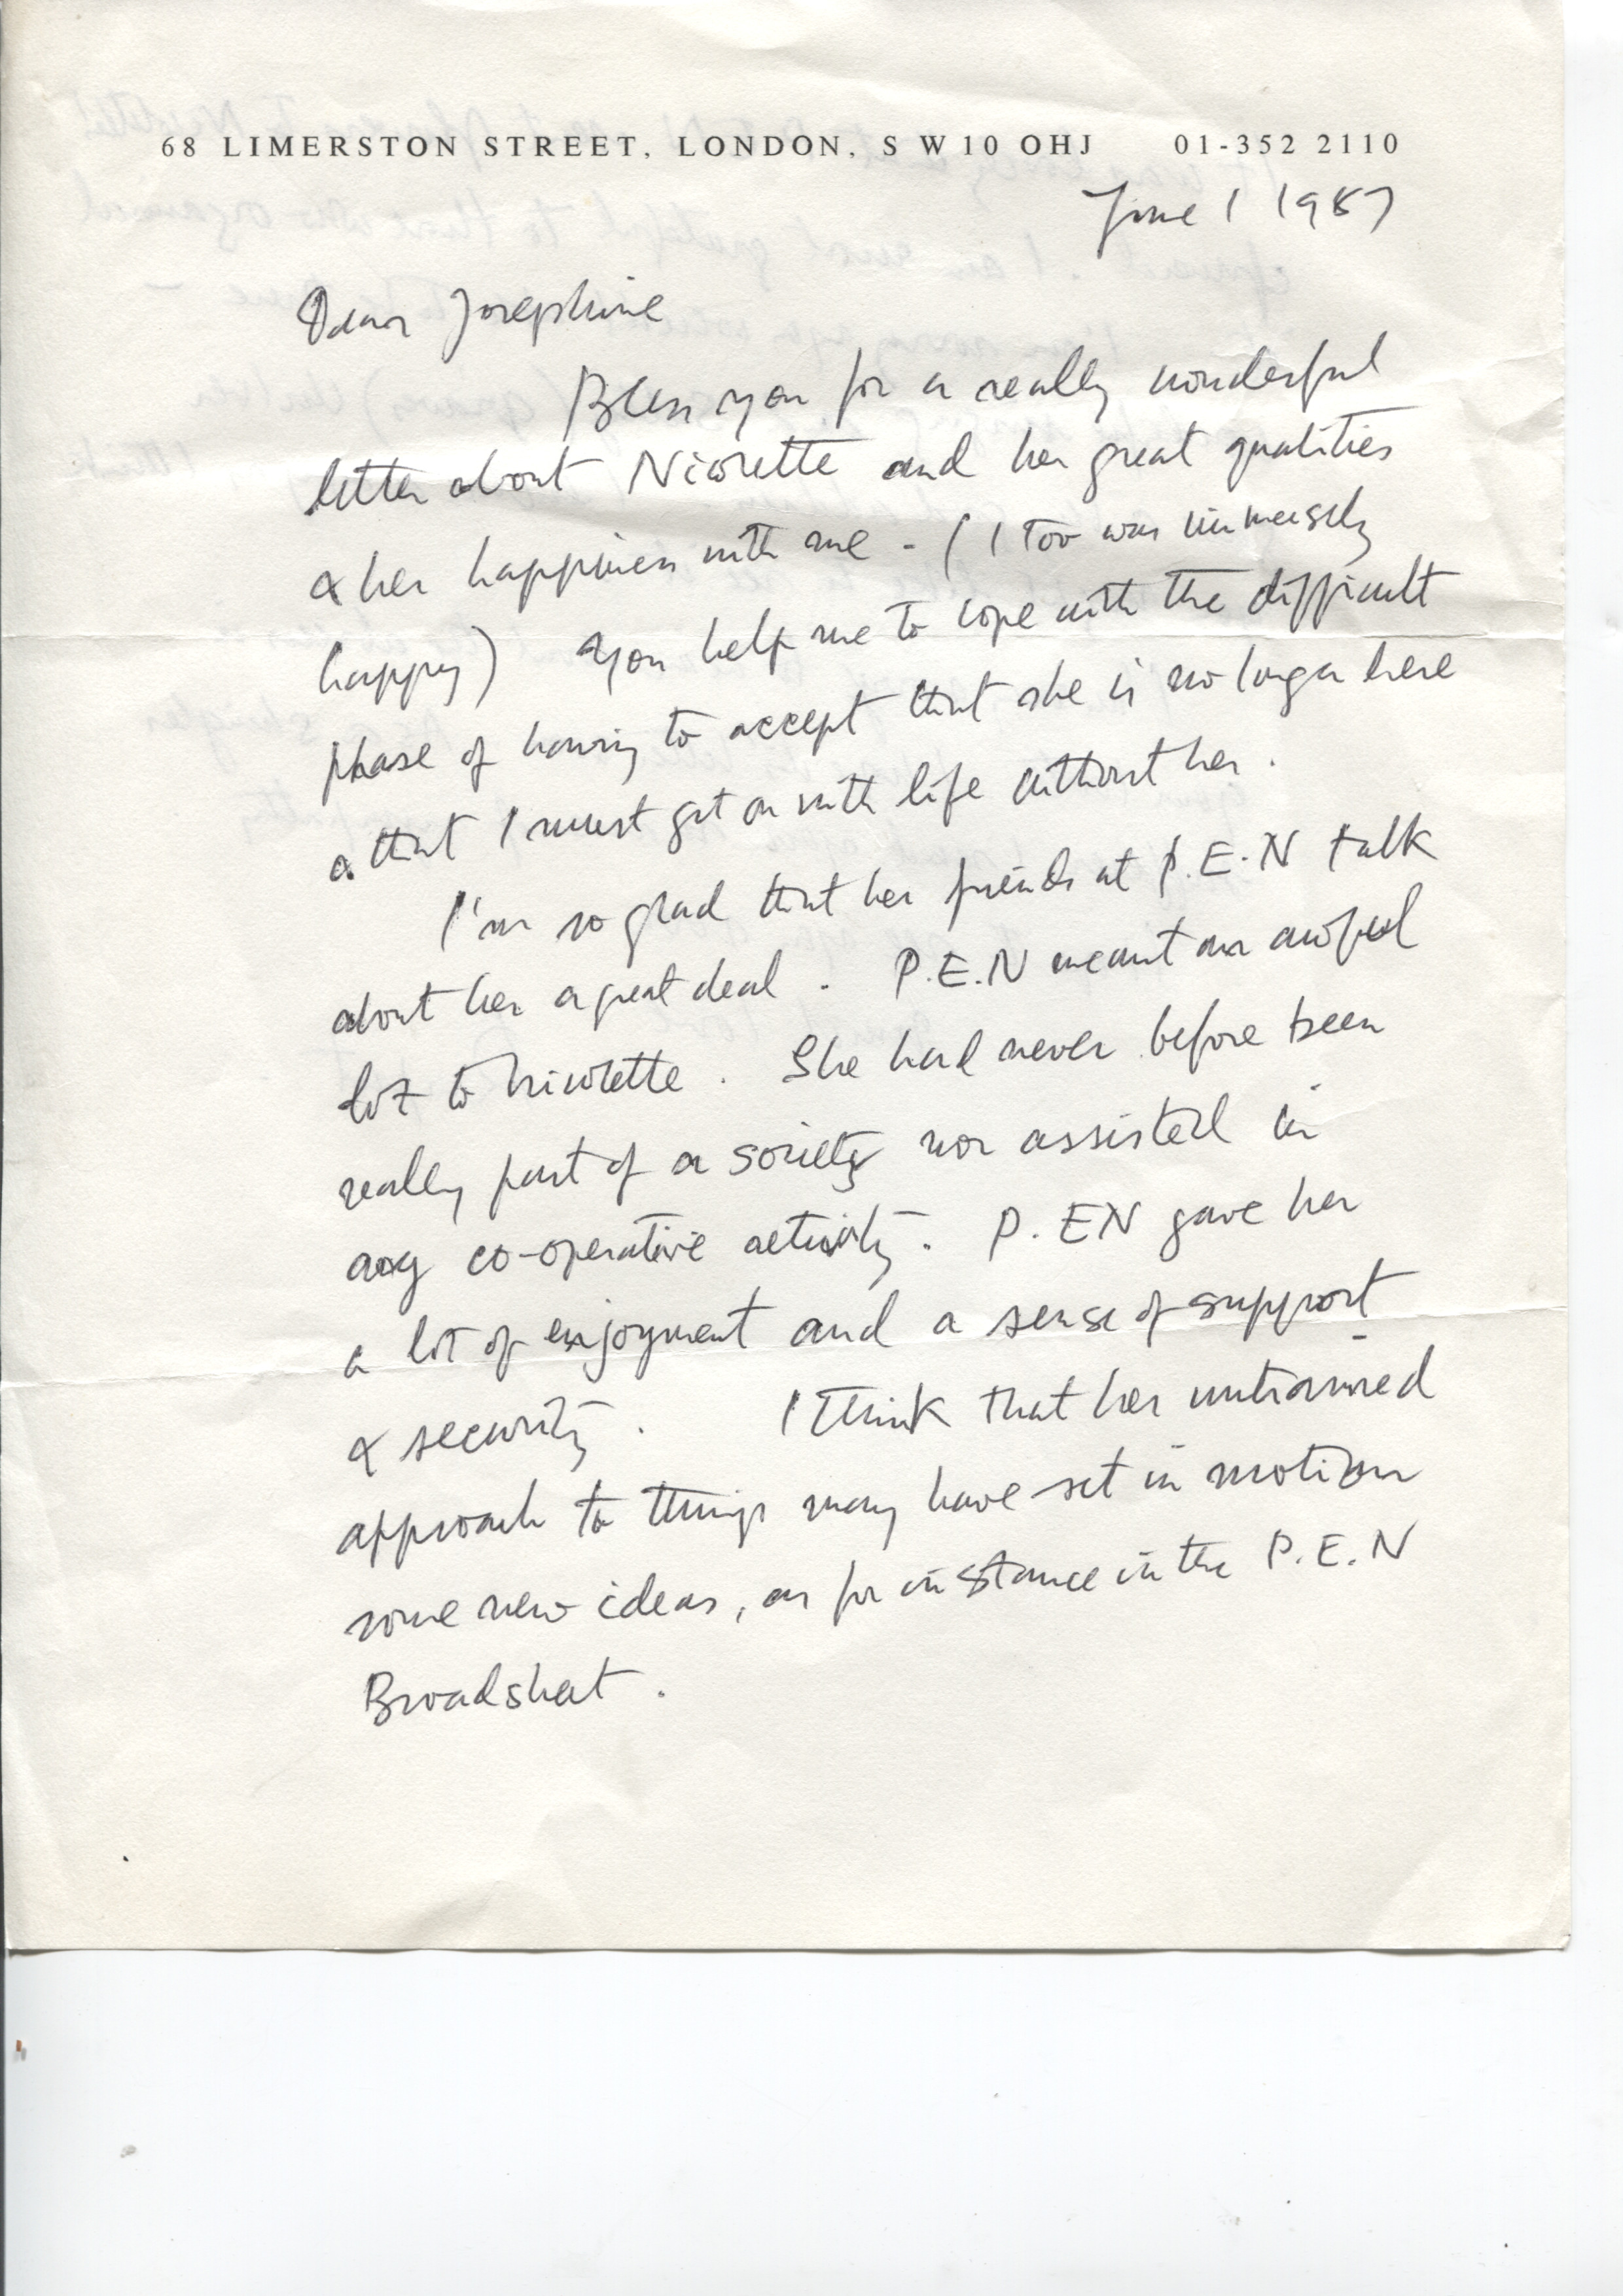 68 LIMERSTON STREET, LONDON, S W 10 OHJ 01-352 2110
June 1 1987
Dear Josephine
Bless you for a really wonderful
letter about Nicolette and her great qualities
& her happiness with me - (I too was immensely
happy) You help me to cope with the difficult
phase of having to accept that she is no longer here
& that I must get on with life without her.
I'm so glad that her friends at P.E.N talk
about her a great deal. P.E.N meant an awful
lot to Nicolette. She had never before been
really part of a society nor assisted in
any co-operative activity. P.EN gave her
a lot of enjoyment and a sense of support
& security. I think that her untrained
approach to things may have set in motion
some new ideas, as for instance in the P.E.N
Broadsheet.